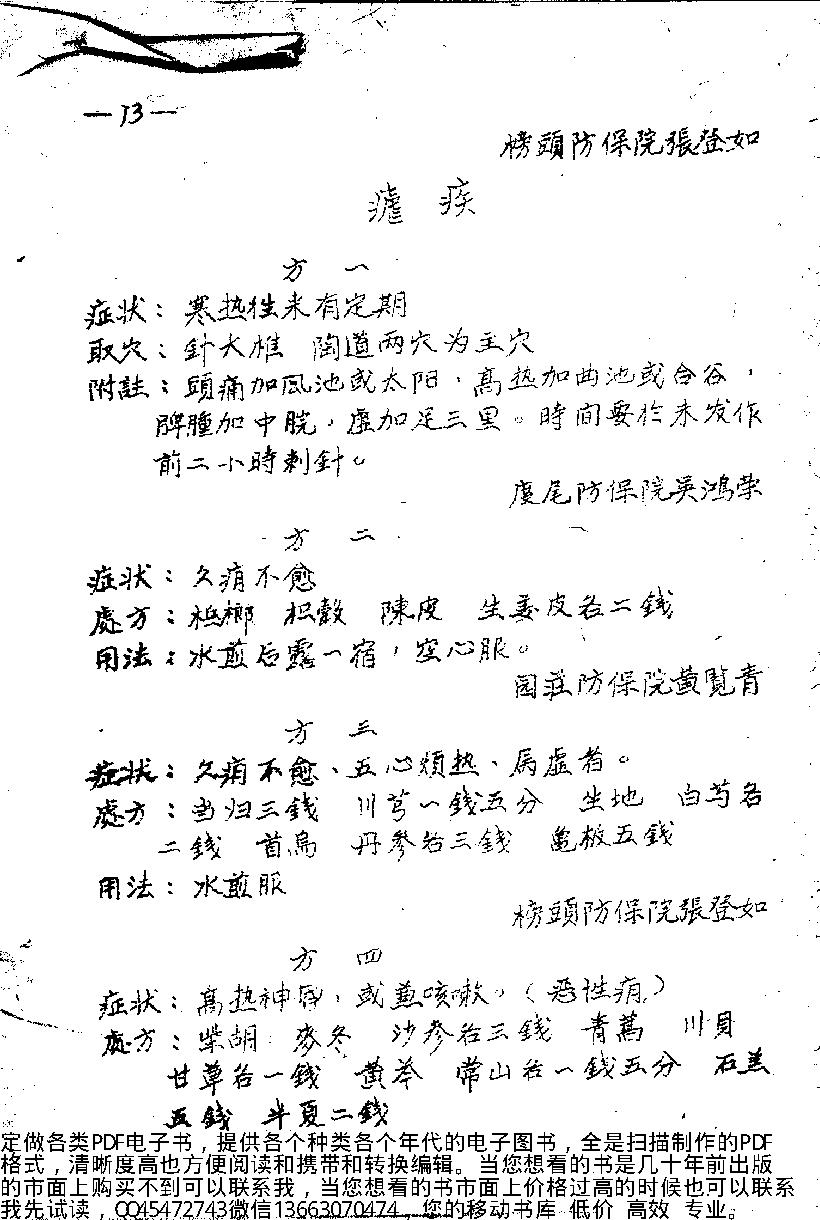 —13—
榜頭防保院張登如
瘧 疾
方 一
症状：寒热往来有定期
取穴：針大椎 陶道两穴为主穴
附註：頭痛加風池或太阳，高热加曲池或合谷，
脾腫加中脘，虚加足三里。時间要於未发作
前二小時刺針。
度尾防保院吴鴻荣
方 二
症状：久痟不愈
處方：梹榔 枳殼 陳皮 生姜皮各二錢
用法：水煎后露一宿，空心服。
园莊防保院黄覧青
方 三
症状：久痟不愈、五心煩热、屬虚者。
處方：当归三錢 川芎一錢五分 生地 白芍各
二錢 首烏 丹參各三錢 龟板五錢
用法：水煎服
榜頭防保院張登如
方 四
症状：高热神昏，或兼咳嗽。（恶性痟）
處方：柴胡 麥冬 沙参各三錢 青蒿 川貝
甘草各一錢 黄芩 常山各一錢五分 石羔
五錢 半夏二錢
定做各类PDF电子书，提供各个种类各个年代的电子图书，全是扫描制作的PDF
格式，清晰度高也方便阅读和携带和转换编辑。当您想看的书是几十年前出版
的市面上购买不到可以联系我，当您想看的书市面上价格过高的时候也可以联系
我先试读，QQ45472743微信13663070474，您的移动书库 低价 高效 专业。